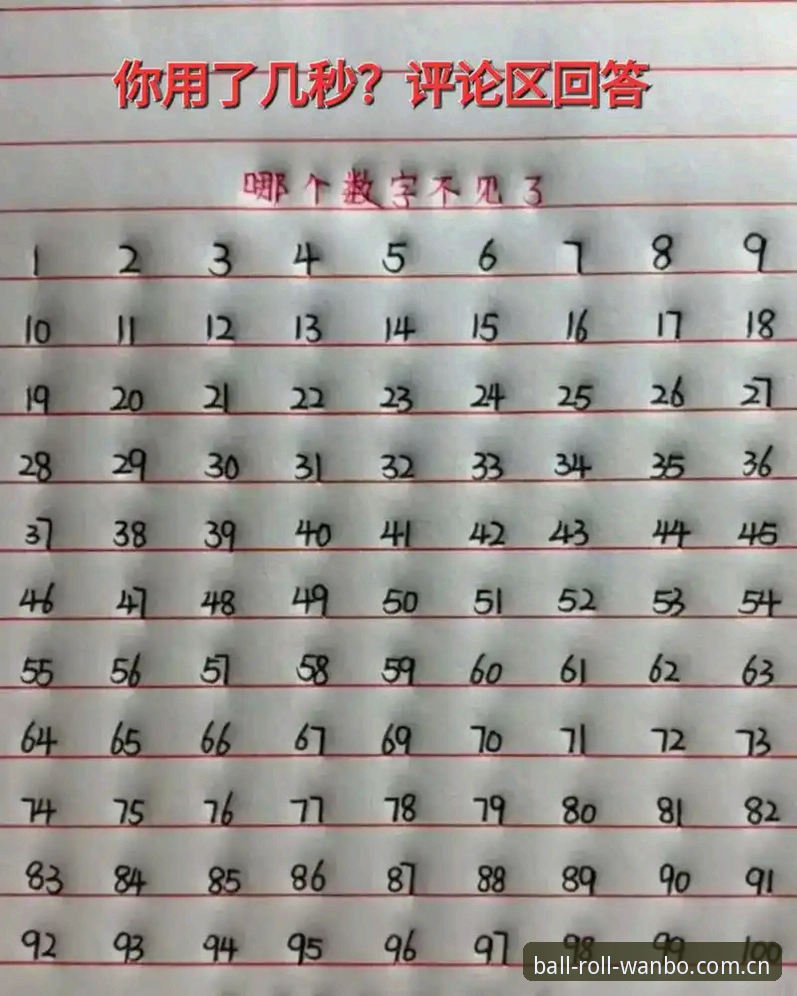 你用了几秒？评论区回答
哪个数字不见了
1 2 3 4 5 6 7 8 9
10 11 12 13 14 15 16 17 18
19 20 21 22 23 24 25 26 27
28 29 30 31 32 33 34 35 36
37 38 39 40 41 42 43 44 45
46 47 48 49 50 51 52 53 54
55 56 57 58 59 60 61 62 63
64 65 66 67 69 70 71 72 73
74 75 76 77 78 79 80 81 82
83 84 85 86 87 88 89 90 91
92 93 94 95 96 97 98 99 100
ball-roll-wanbo.com.cn